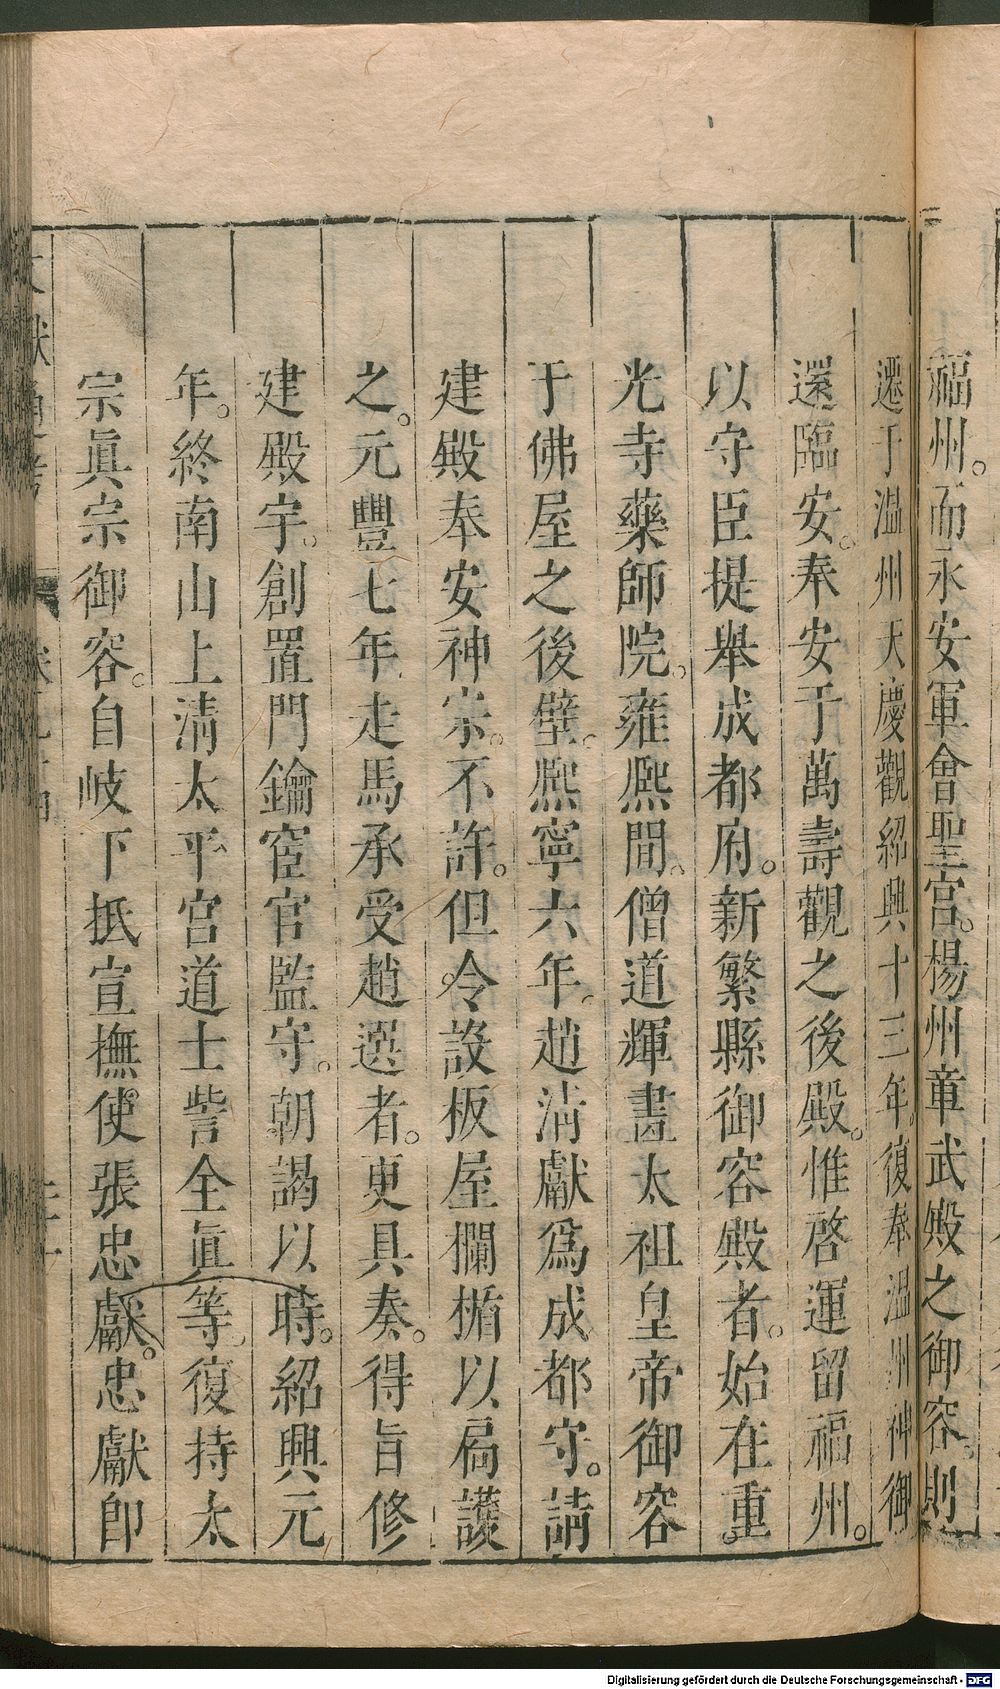 福州。而永安軍會聖宮。楊州章武殿之御容。則
遷于温州天慶觀紹興十三年。復奉温州神御
還臨安。奉安于萬壽觀之後殿。惟啓運留福州。
以守臣提舉成都府。新繁縣御容殿者。始在重
光寺藥師院。雍熈間。僧道輝畫太祖皇帝御容
于佛屋之後壁。熈寧六年。趙清獻爲成都守。請
建殿奉安神宗。不許。但令設板屋欄楯以扃護
之。元豐七年走馬承受趙選者。更具奏。得旨修
建殿宇。創置門鑰宦官監守。朝謁以時。紹興元
年。終南山上清太平宮道士訾全眞等。復持太
宗眞宗御容。自岐下抵宣撫使張忠獻。忠獻卽
文獻通考
Digitalisierung gefördert durch die Deutsche Forschungsgemeinschaft - DFG